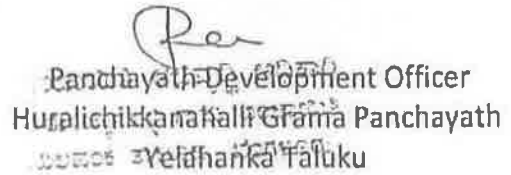 Panchayath Development Officer
Huralichikkanahalli Grama Panchayath
Yelahanka Taluku